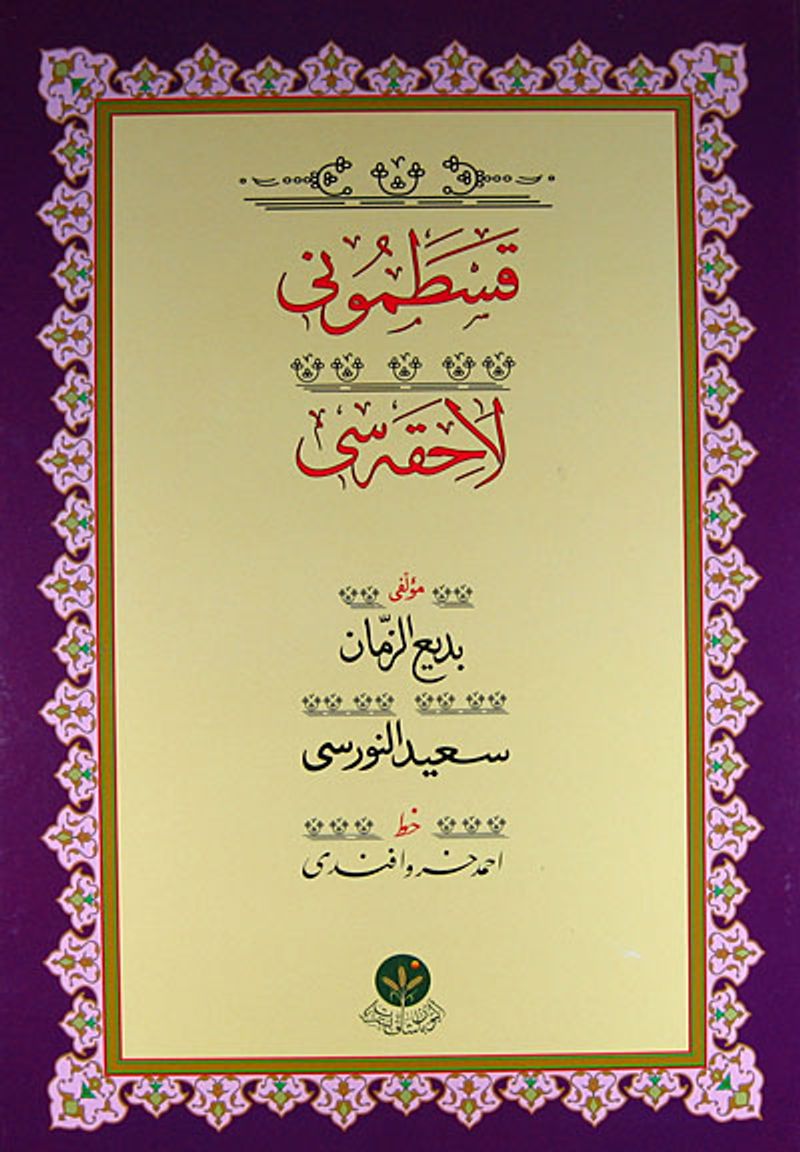 قسطَمُونی
لاَحِقَه سی
مؤلّفی
بديع الزّمان
سعيد النورسی
خط
احمد خسرو افندی